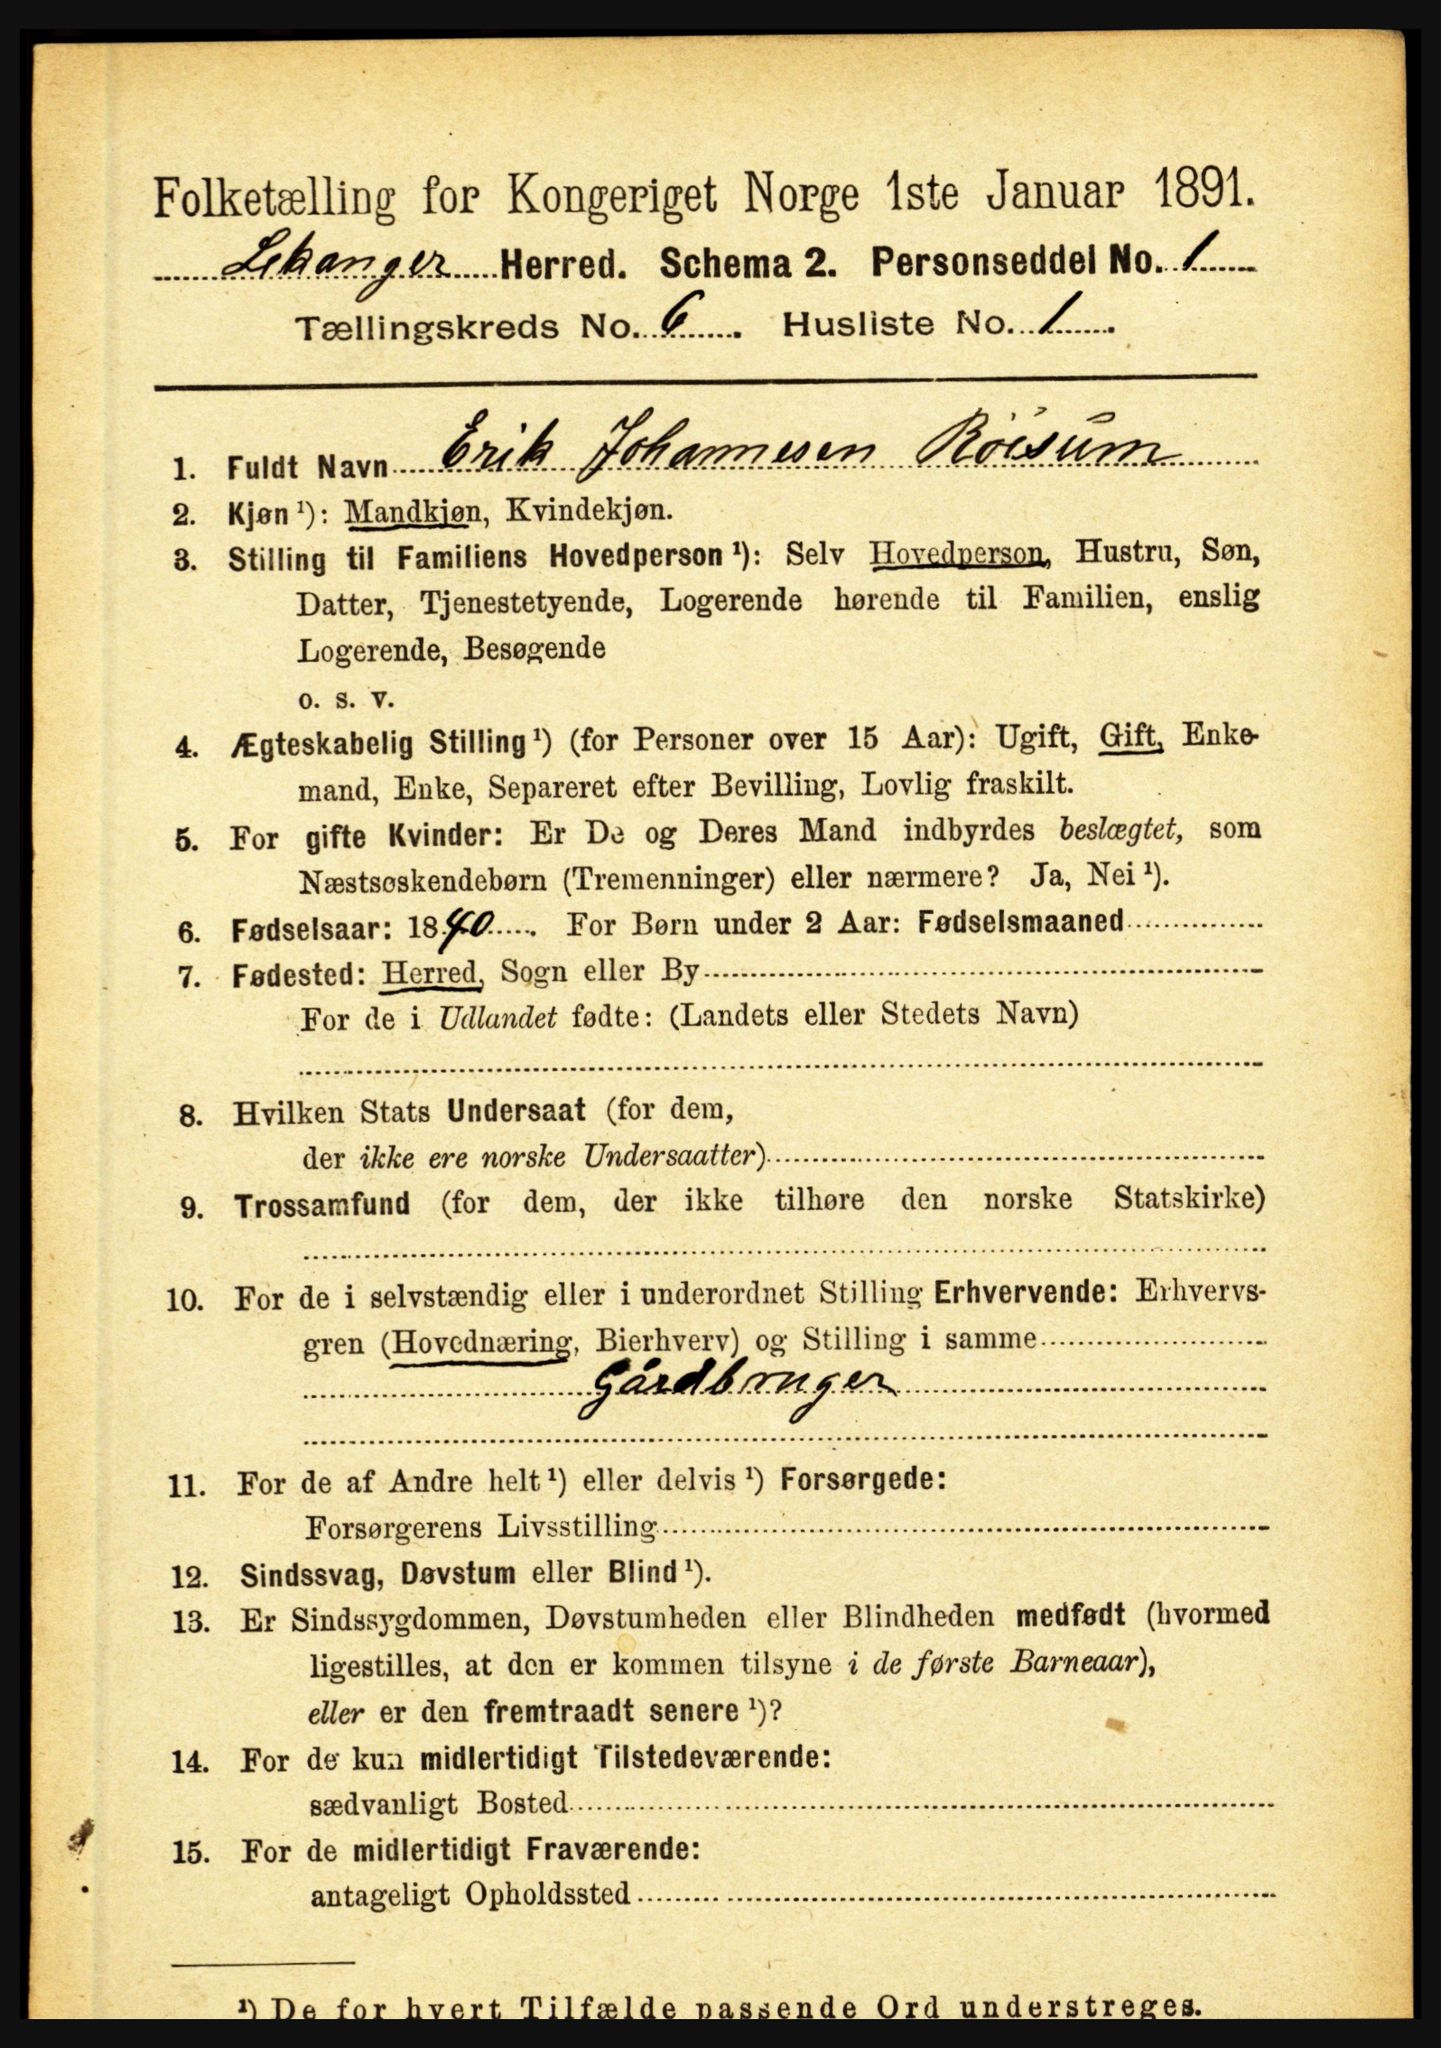 Folketælling for Kongeriget Norge 1ste Januar 1891.
Lekanger Herred. Schema 2. Personseddel No. 1
Tællingskreds No. 6. Husliste No. 1.
1. Fuldt Navn Erik Johannesen Röisum
2. Kjøn ¹): Mandkjøn, Kvindekjøn.
3. Stilling til Familiens Hovedperson ¹): Selv Hovedperson, Hustru, Søn,
Datter, Tjenestetyende, Logerende hørende til Familien, enslig
Logerende, Besøgende
o. s. v.
4. Ægteskabelig Stilling ¹) (for Personer over 15 Aar): Ugift, Gift, Enke-
mand, Enke, Separeret efter Bevilling, Lovlig fraskilt.
5. For gifte Kvinder: Er De og Deres Mand indbyrdes beslægtet, som
Næstsøskendebørn (Tremenninger) eller nærmere? Ja, Nei ¹).
6. Fødselsaar: 1840. For Børn under 2 Aar: Fødselsmaaned
7. Fødested: Herred, Sogn eller By
For de i Udlandet fødte: (Landets eller Stedets Navn)
8. Hvilken Stats Undersaat (for dem,
der ikke ere norske Undersaatter)
9. Trossamfund (for dem, der ikke tilhøre den norske Statskirke)
10. For de i selvstændig eller i underordnet Stilling Erhvervende: Erhvervs-
gren (Hovednæring, Bierhverv) og Stilling i samme
Gårdbruger
11. For de af Andre helt ¹) eller delvis ¹) Forsørgede:
Forsørgerens Livsstilling
12. Sindssvag, Døvstum eller Blind ¹).
13. Er Sindssygdommen, Døvstumheden eller Blindheden medfødt (hvormed
ligestilles, at den er kommen tilsyne i de første Barneaar),
eller er den fremtraadt senere ¹)?
14. For de kun midlertidigt Tilstedeværende:
sædvanligt Bosted
15. For de midlertidigt Fraværende:
antageligt Opholdssted
¹) De for hvert Tilfælde passende Ord understreges.